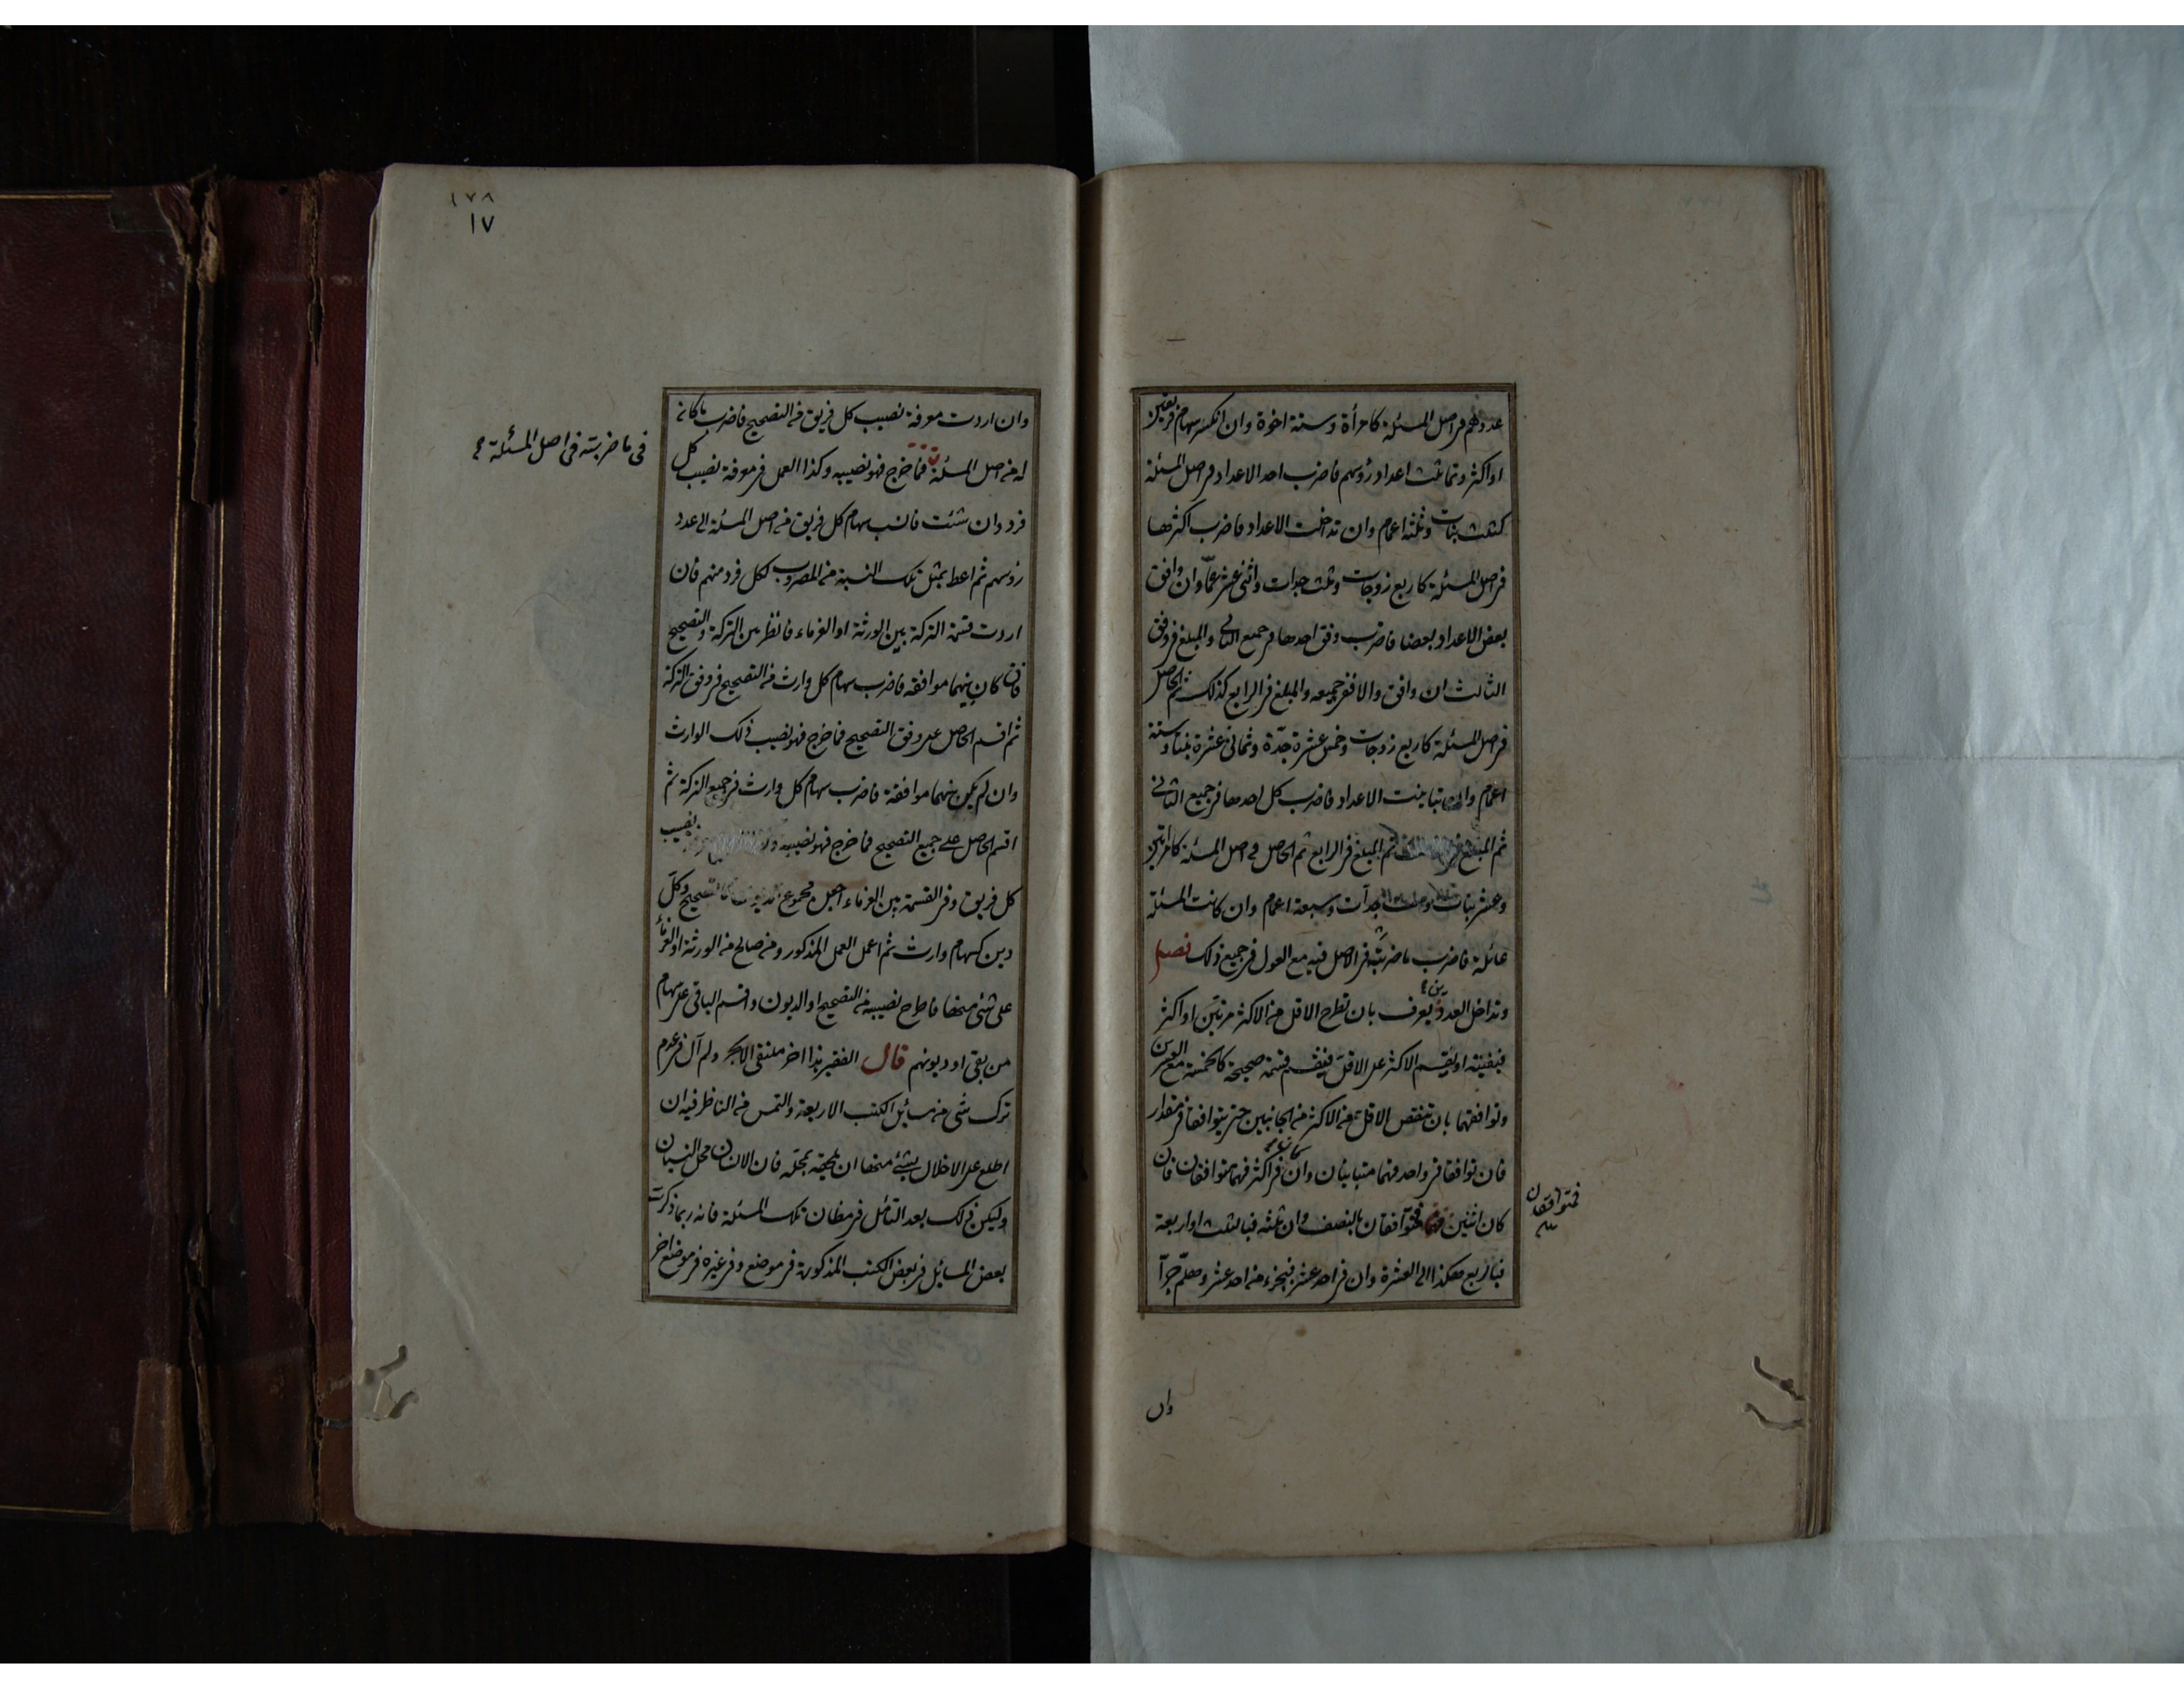 عددهم فى اصل المسئلة كامرأة وستة اخوة وان انكسر سهام فريقين
او اكثر وتماثلت اعداد رؤسهم فاضرب احد الاعداد فى اصل المسئلة
كثلث بنات وثلثة اعمام وان تداخلت الاعداد فاضرب اكثرها
فى اصل المسئلة كاربع زوجات وثلث جدات واثنى عشر عمّا وان وافق
بعض الاعداد بعضا فاضرب وفق احدها فى جميع الثانى والمبلغ فى وفق
الثالث ان وافق والا ففى جميعه والمبلغ فى الرابع كذلك ثم الحاصل
فى اصل المسئلة كاربع زوجات وخمس عشرة جدّة وثمانى عشرة بنتا وستة
اعمام وان تباينت الاعداد فاضرب كل احدها فى جميع الثانى
ثم المبلغ فى ثم المبلغ فى الرابع ثم الحاصل فى اصل المسئلة كامرأتين
وعشر بنات وست جدات وسبعة اعمام وان كانت المسئلة
عائلة فاضرب ما ضربته فى الاصل فيه مع العول فى جميع ذلك فصل
وتداخل العددين يعرف بان تطرح الاقل من الاكثر مرتين او اكثر
فيفنيه او يقسم الاكثر على الاقل فينقسم قسمة صحيحة كالخمسة مع العشرين
وتوافقهما بان تنقص الاقل من الاكثر من الجانبين حتى يتوافقا فى مقدار
فان توافقا فى واحد فهما متباينان وان كان فى اكثر فهما متوافقان فان
كان اثنين فمتوافقان بالنصف وان ثلثة فبالثلث او اربعة
فبالربع هكذا الى العشرة وان فى احد عشر فبجزء من احد عشر وهلمّ جرّا
فمتوافقان
وان
١٧٨
١٧
وان اردت معرفة نصيب كل فريق من التصحيح فاضرب ما كان
له من اصل المسئلة فما خرج فهو نصيبه وكذا العمل فى معرفة نصيب كل
فى ما ضربته فى اصل المسئلة
فرد وان شئت فانسب سهام كل فريق من اصل المسئلة الى عدد
رؤسهم ثم اعط بمثل تلك النسبة من المضروب لكل فرد منهم فان
اردت قسمة التركة بين الورثة او الغرماء فانظر بين التركة والتصحيح
فان كان بينهما موافقة فاضرب سهام كل وارث من التصحيح فى وفق التركة
ثم اقسم الحاصل على وفق التصحيح فما خرج فهو نصيب ذلك الوارث
وان لم يكن بينهما موافقة فاضرب سهام كل وارث فى جميع التركة ثم
اقسم الحاصل على جميع التصحيح فما خرج فهو نصيبه نصيب
كل فريق وفى القسمة بين الغرماء اجعل مجموع الديون كالتصحيح وكلّ
دين كسهام وارث ثم اعمل العمل المذكور ومن صالح من الورثة او الغرماء
على شئ منها فاطرح نصيبه من التصحيح او الديون واقسم الباقى على سهام
من بقى او ديونهم قال الفقير هذا اخر ملتقى الابحر ولم آل فى عدم
ترك شئ من مسائل الكتب الاربعة والتمس من الناظر فيه ان
اطلع على الاخلال بشئ منها ان يلحقه بمحله فان الانسان محل النسيان
وليكن ذلك بعد التأمل فى مظان تلك المسئلة فانه ربما ذكرت
بعض المسائل فى بعض الكتب المذكورة فى موضع وفى غيره فى موضع اخر